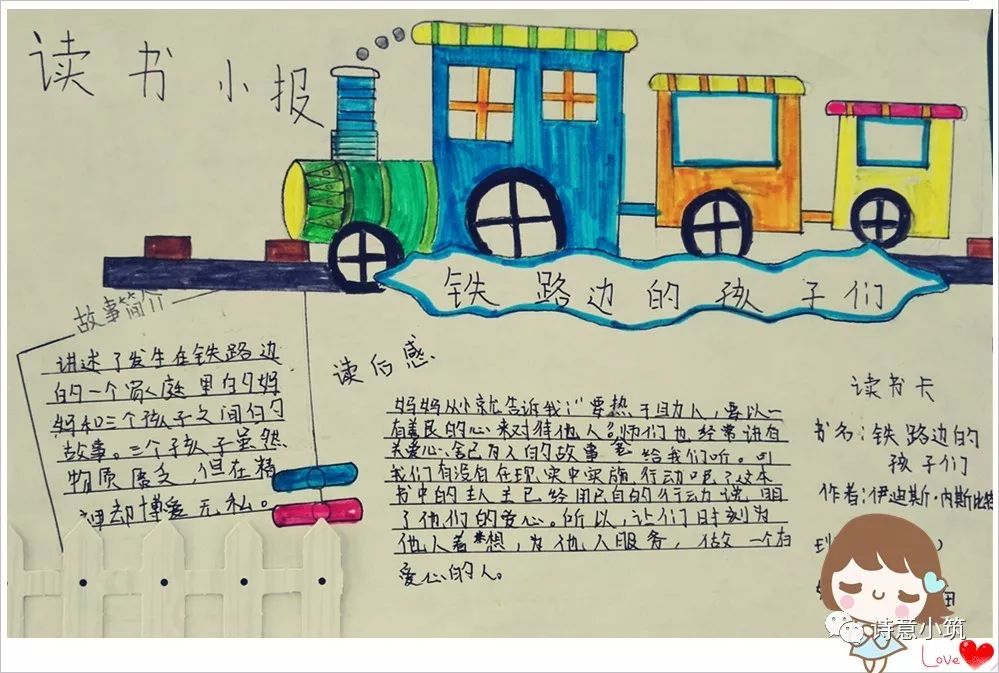 读书小报
铁路边的孩子们
故事简介
讲述了发生在铁路边
的一个家庭里的妈
妈和三个孩子之间的
故事。三个孩子虽然
物质匮乏,但在精
神却博爱无私。
读后感
妈妈从小就告诉我:"要热于助人,要以一
有善良的心来对待他人。老师们也经常讲有
关爱心、舍己为人的故事 给我们听。可
我们有没有在现实中实施行动呢?这本
书中的主人主已经用自的行动说明
了他们的爱心。所以,让们时刻为
他人着想,为他人服务,做一个有
爱心的人。
读书卡
书名:铁路边的
孩子们
作者:伊迪斯·内斯比特
诗意小筑
Love